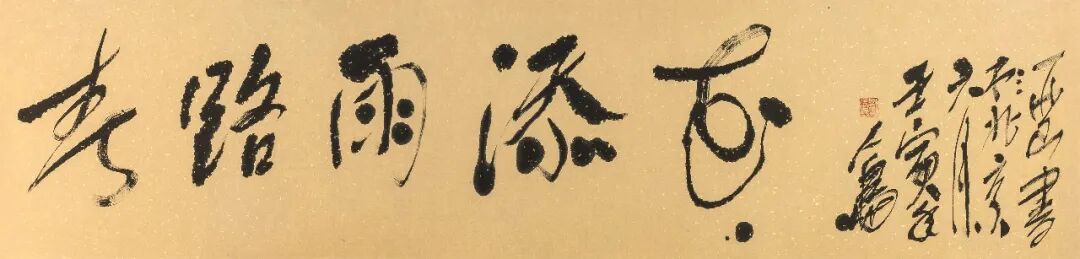 春路雨添花
壬寅年
六月
於北京
山書